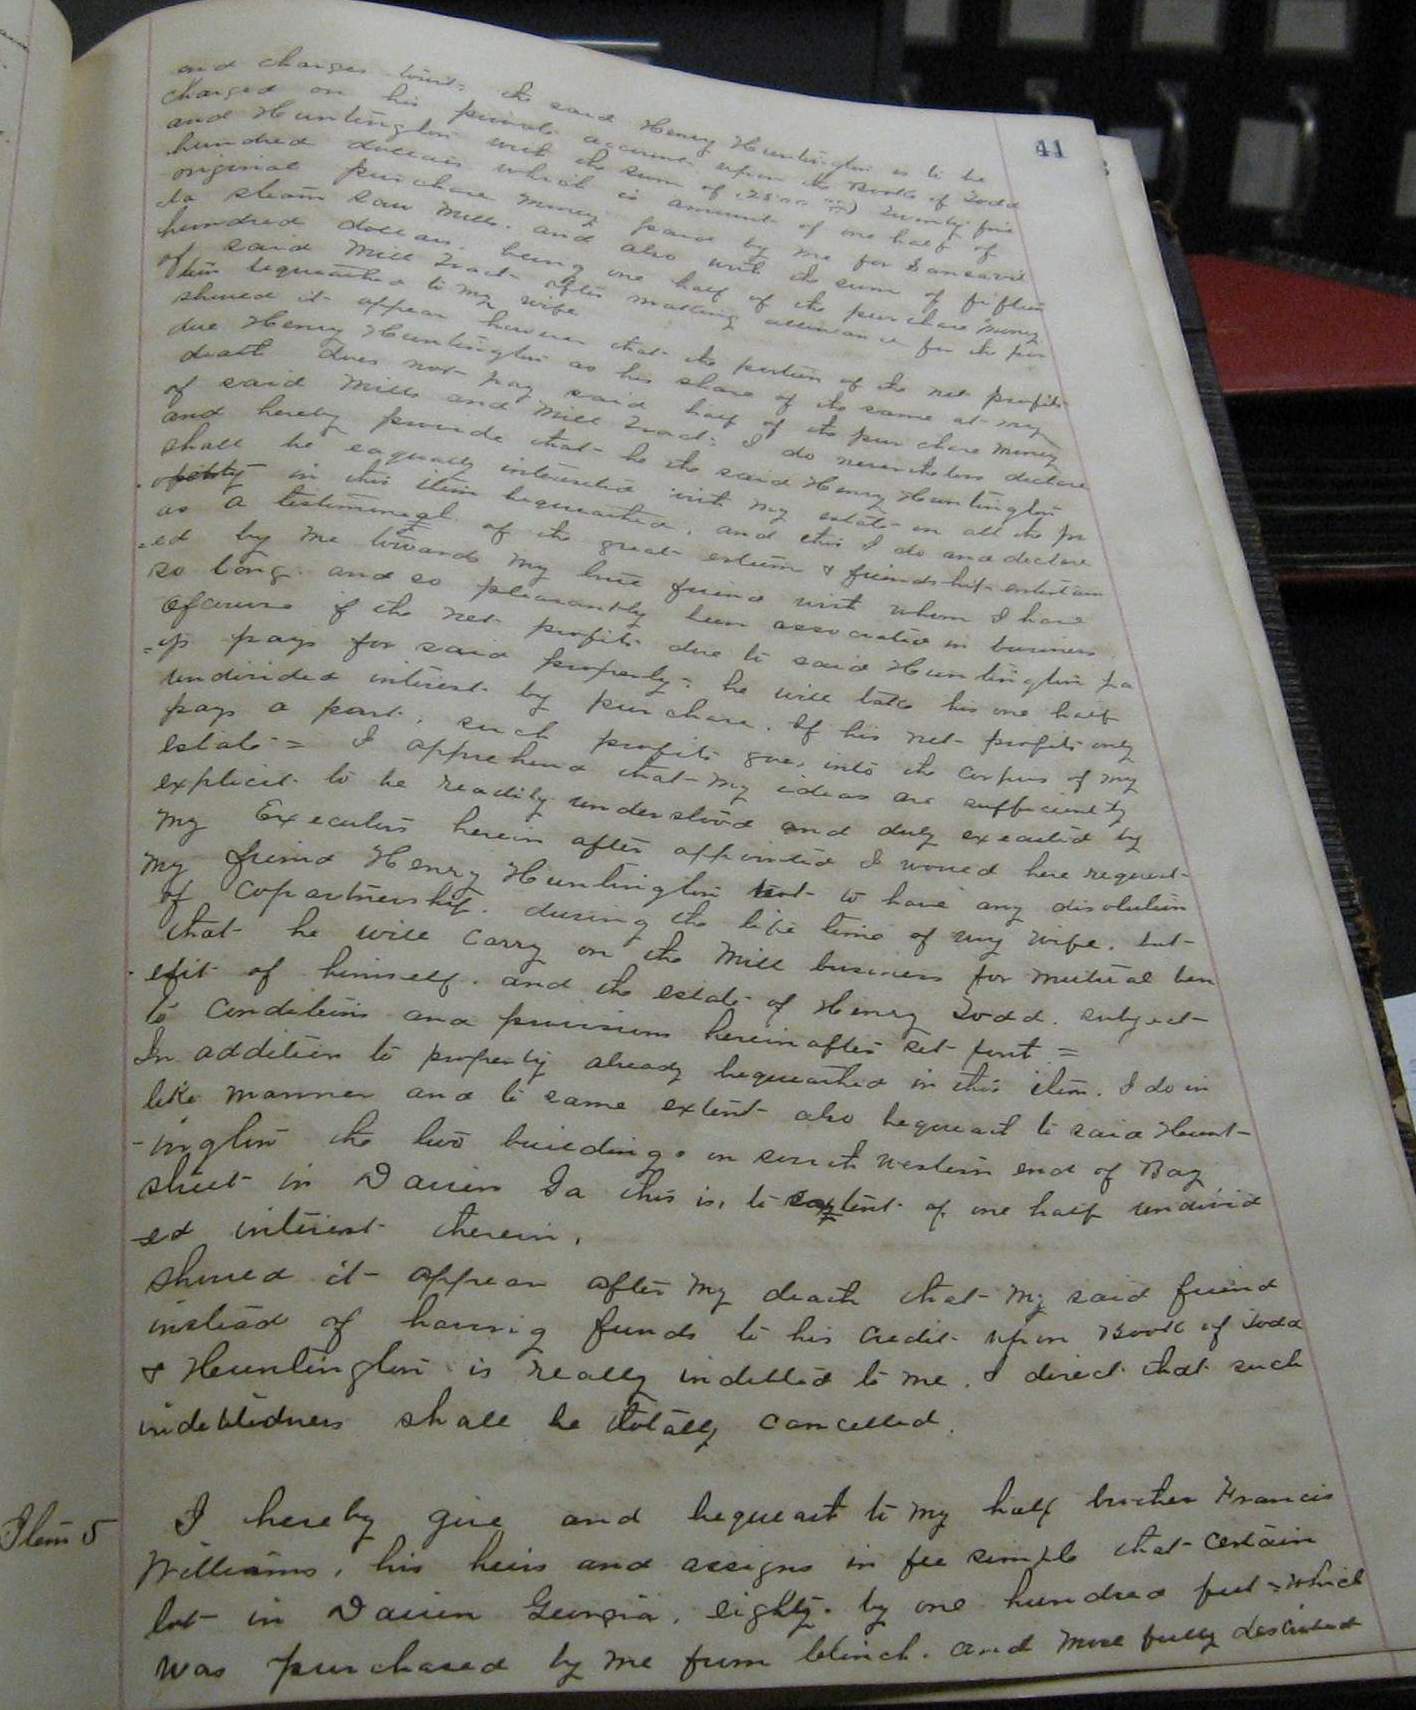 41
and charges too: the said Henry Huntington is to be
charged on his private account upon the Books of Todd
and Huntington with the sum of (2500 00/100) Twenty five
hundred dollars which is amount of one half of
original purchase money paid by me for
steam saw Mills. and also with the sum of fifteen
hundred dollars. being one half of the purchase money
of said Mill Tract after making allowance for the
bequeathed to my wife
should it appear however that the portion of the net profits
due Henry Huntington as his share of the same at my
death does not pay said half of the purchase money
of said Mills and Mill Tract: I do nevertheless declare
and hereby provide that he the said Henry Huntington
shall be equally interested with my estate in all the pr
operty in this item bequeathed. and this I do and declare
as a testimonial of the great esteem & friendship entertain
-ed by me towards my true friend with whom I have
so long. and so pleasantly been associated in business.
Of course if the net profits due to said Huntington pa
=ys pays for said property: he will take his one half
undivided interest by purchase. If his net profits only
pays a part, such profits goes into the corpus of my
estate = I apprehend that my ideas are sufficiently
explicit to be readily understood and duly executed by
my Executors herein after appointed I would here request
my friend Henry Huntington not to have any disolution
of Copartnership. during the life time of my wife. but
that he will carry on the Mill business for mutual ben
efit of himself. and the estate of Henry Todd. subject
to conditions and provisions herein after set fort =
In addition to property already bequeathed in this item. I do in
like manner and to same extent also bequeath to said Hunt-
-ington the two buildings on south western end of Bay
street in Darien Ga this is, to extent of one half undivid
ed interest therein.
should it appear after my death that my said friend
instead of having funds to his credit upon Book of Todd
& Huntington is really indebted to me. I direct that such
indebtedness shall be totally cancelled.
Item 5 I hereby give and bequeath to my half brother Francis
Williams, his heirs and assigns in fee simple that certain
lot in Darien Georgia, eighty. by one hundred feet = which
was purchased by me from Clinch. and more fully described